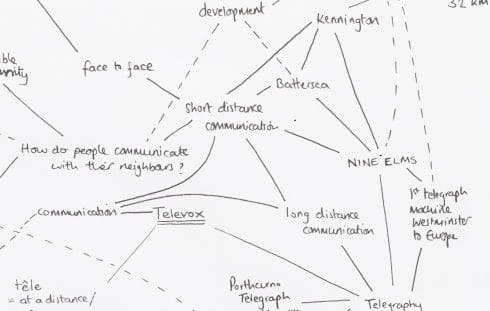 development
Kennington
32 km
ble
unity
face to face
Battersea
short distance
communication
How do people communicate
with their neighbours?
NINE ELMS
1st telegraph
Machine
Westminster
to Europe
communication
Televox
long distance
communication
têle
= at a distance/
Porthcurno
Telegraph
Telegraphy